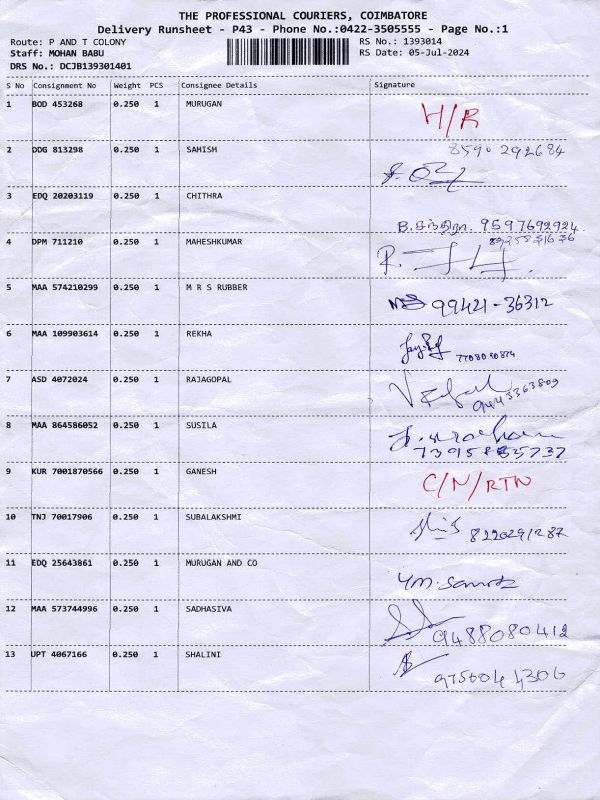 THE PROFESSIONAL COURIERS, COIMBATORE
Delivery Runsheet - P43 - Phone No.:0422-3505555 - Page No.:1
Route: P AND T COLONY RS No.: 1393014
Staff: MOHAN BABU RS Date: 05-Jul-2024
DRS No.: DCJB139301401
S No Consignment No Weight PCS Consignee Details Signature
1 BOD 453268 0.250 1 MURUGAN H/R
2 DDG 813298 0.250 1 SAHISH 8590 292684
3 EDQ 20203119 0.250 1 CHITHRA
B. 9597692924
4 DPM 711210 0.250 1 MAHESHKUMAR
5 MAA 574210299 0.250 1 M R S RUBBER 99421-36312
6 MAA 109903614 0.250 1 REKHA
7 ASD 4072024 0.250 1 RAJAGOPAL 9443363809
8 MAA 864586052 0.250 1 SUSILA
9 KUR 7001870566 0.250 1 GANESH C/N/RTN
10 TNJ 70017906 0.250 1 SUBALAKSHMI 8220291287
11 EDQ 25643861 0.250 1 MURUGAN AND CO
12 MAA 573744996 0.250 1 SADHASIVA 9488080412
13 UPT 4067166 0.250 1 SHALINI